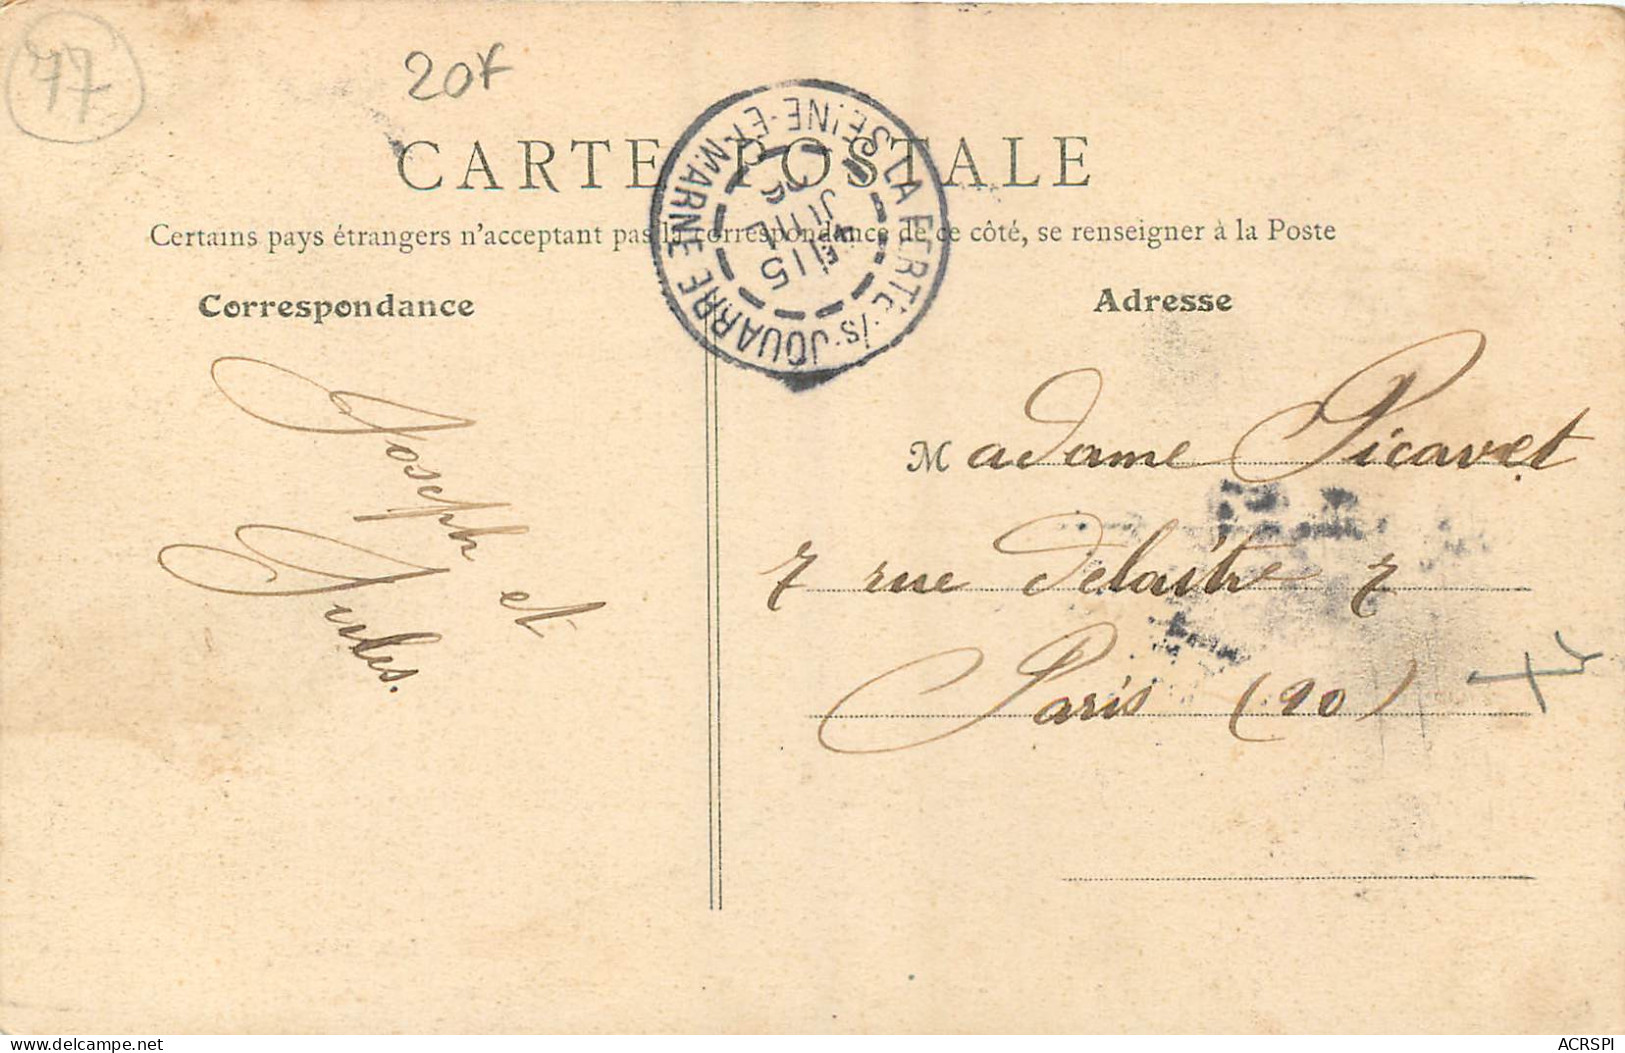 77
20f
CARTE POSTALE
Certains pays étrangers n'acceptant pas la correspondance de ce côté, se renseigner à la Poste
LA FERTÉ-/S-JOUARRE
SEINE-ET-MARNE
15
JUIL
Correspondance
Joseph et
Jules.
Adresse
Madame Picavet
7 rue Delaitre 7
Paris (20)
delcampe.net
ACRSPI